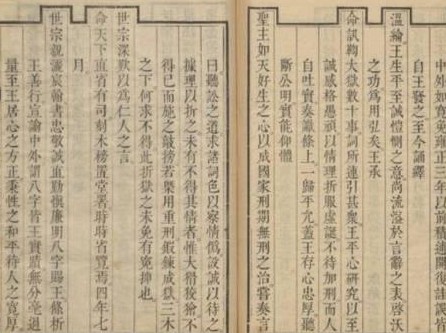 中外如雍正三年以精進開復
自王發之至今誦繹
溫綸王生平至誠惻怛之意尚流溢於言辭之表啓沃
之功為用弘矣王承
命訊鞫大獄數十事詞所連引甚眾王平心研究以至
誠感格愚頑以情理折服虛誕不待加刑而人
自吐實奏讞條上一歸平允蓋王存心忠厚聽
斷公明實能仰體
聖主如天好生之心以成國家刑期無刑之治嘗奏言
曰聽訟之道求諸詞色以察情偽設誠以待之
據理以折之未有不得其情者惟大猾狡獪不
得已而施之敲搒若槩用重刑鍛鍊成獄三木
之下何求不得此折獄之未免有冤抑也
世宗深歎以為仁人之言
命天下直省有司刻木榜置堂署時時省覽焉四年七
月
世宗親灑宸翰書忠敬誠直勤慎廉明八字賜王條析
王善行宣諭中外謂八字皆王實蹟無分毫過
量至王居心之方正秉性之和平待人之寬厚